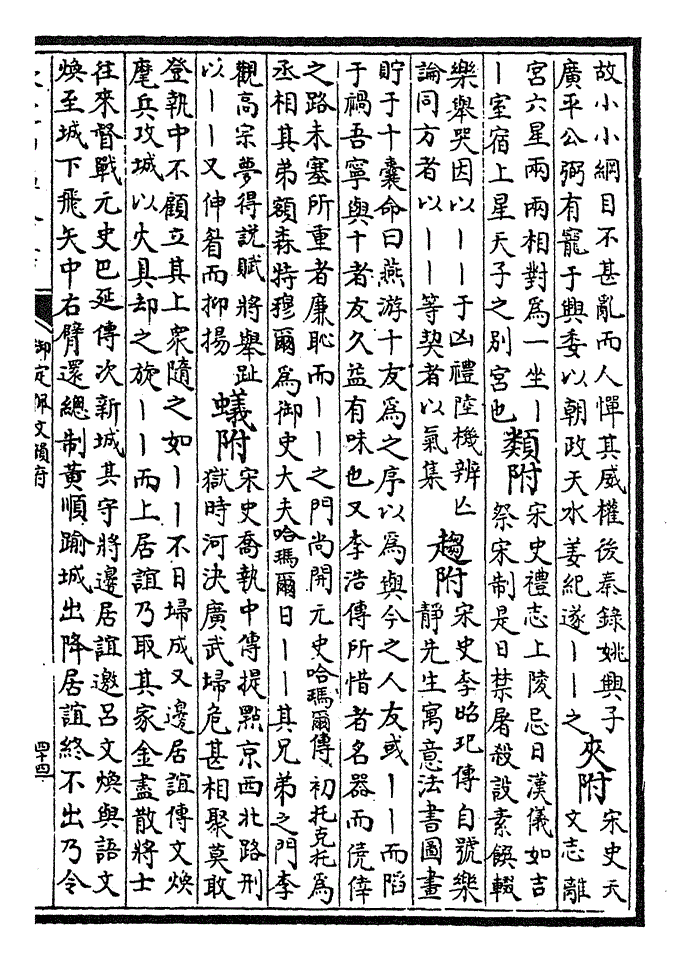 故小小綱目不甚亂而人憚其威權後秦錄姚興子
廣平公弼有寵于興委以朝政天水姜紀遂丨丨之
夾附
宋史天
文志離
宮六星兩兩相對為一坐丨
丨室宿上星天子之別宮也
類附
宋史禮志上陵忌日漢儀如吉
祭宋制是日禁屠殺設素饌輟
樂舉哭因以丨丨于凶禮陸機辨亾
論同方者以丨丨等契者以氣集
趨附
宋史李昭玘傳自號樂
靜先生寓意法書圖畫
貯于十囊命曰燕游十友為之序以為與今之人友或丨丨而陷
于禍吾寧與十者友久益有味也又李浩傳所惜者名器而僥倖
之路未塞所重者廉恥而丨丨之門尚開元史哈瑪爾傳初托克托為
丞相其弟額森特穆爾為御史大夫哈瑪爾日丨丨其兄弟之門李
觀高宗夢得說賦將舉趾
以丨丨又伸眷而抑揚
蟻附
宋史喬執中傳提點京西北路刑
獄時河決廣武埽危甚相聚莫敢
登執中不顧立其上衆隨之如丨丨不日埽成又邊居誼傳文煥
麾兵攻城以火具却之旋丨丨而上居誼乃取其家金盡散將士
往來督戰元史巴延傳次新城其守將邊居誼邀呂文煥與語文
煥至城下飛矢中右臂還總制黃順踰城出降居誼終不出乃令
御定佩文韻府
四十四